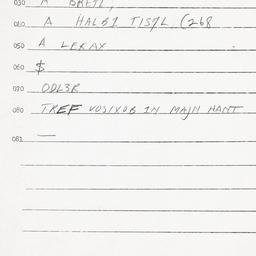 030 A BRETL,
010 A HALG1 TISIL (268
050 A LEKAY
060 $
070 ODL3R
080 TREF VOSIXOB IN MAJN HANT
082 —